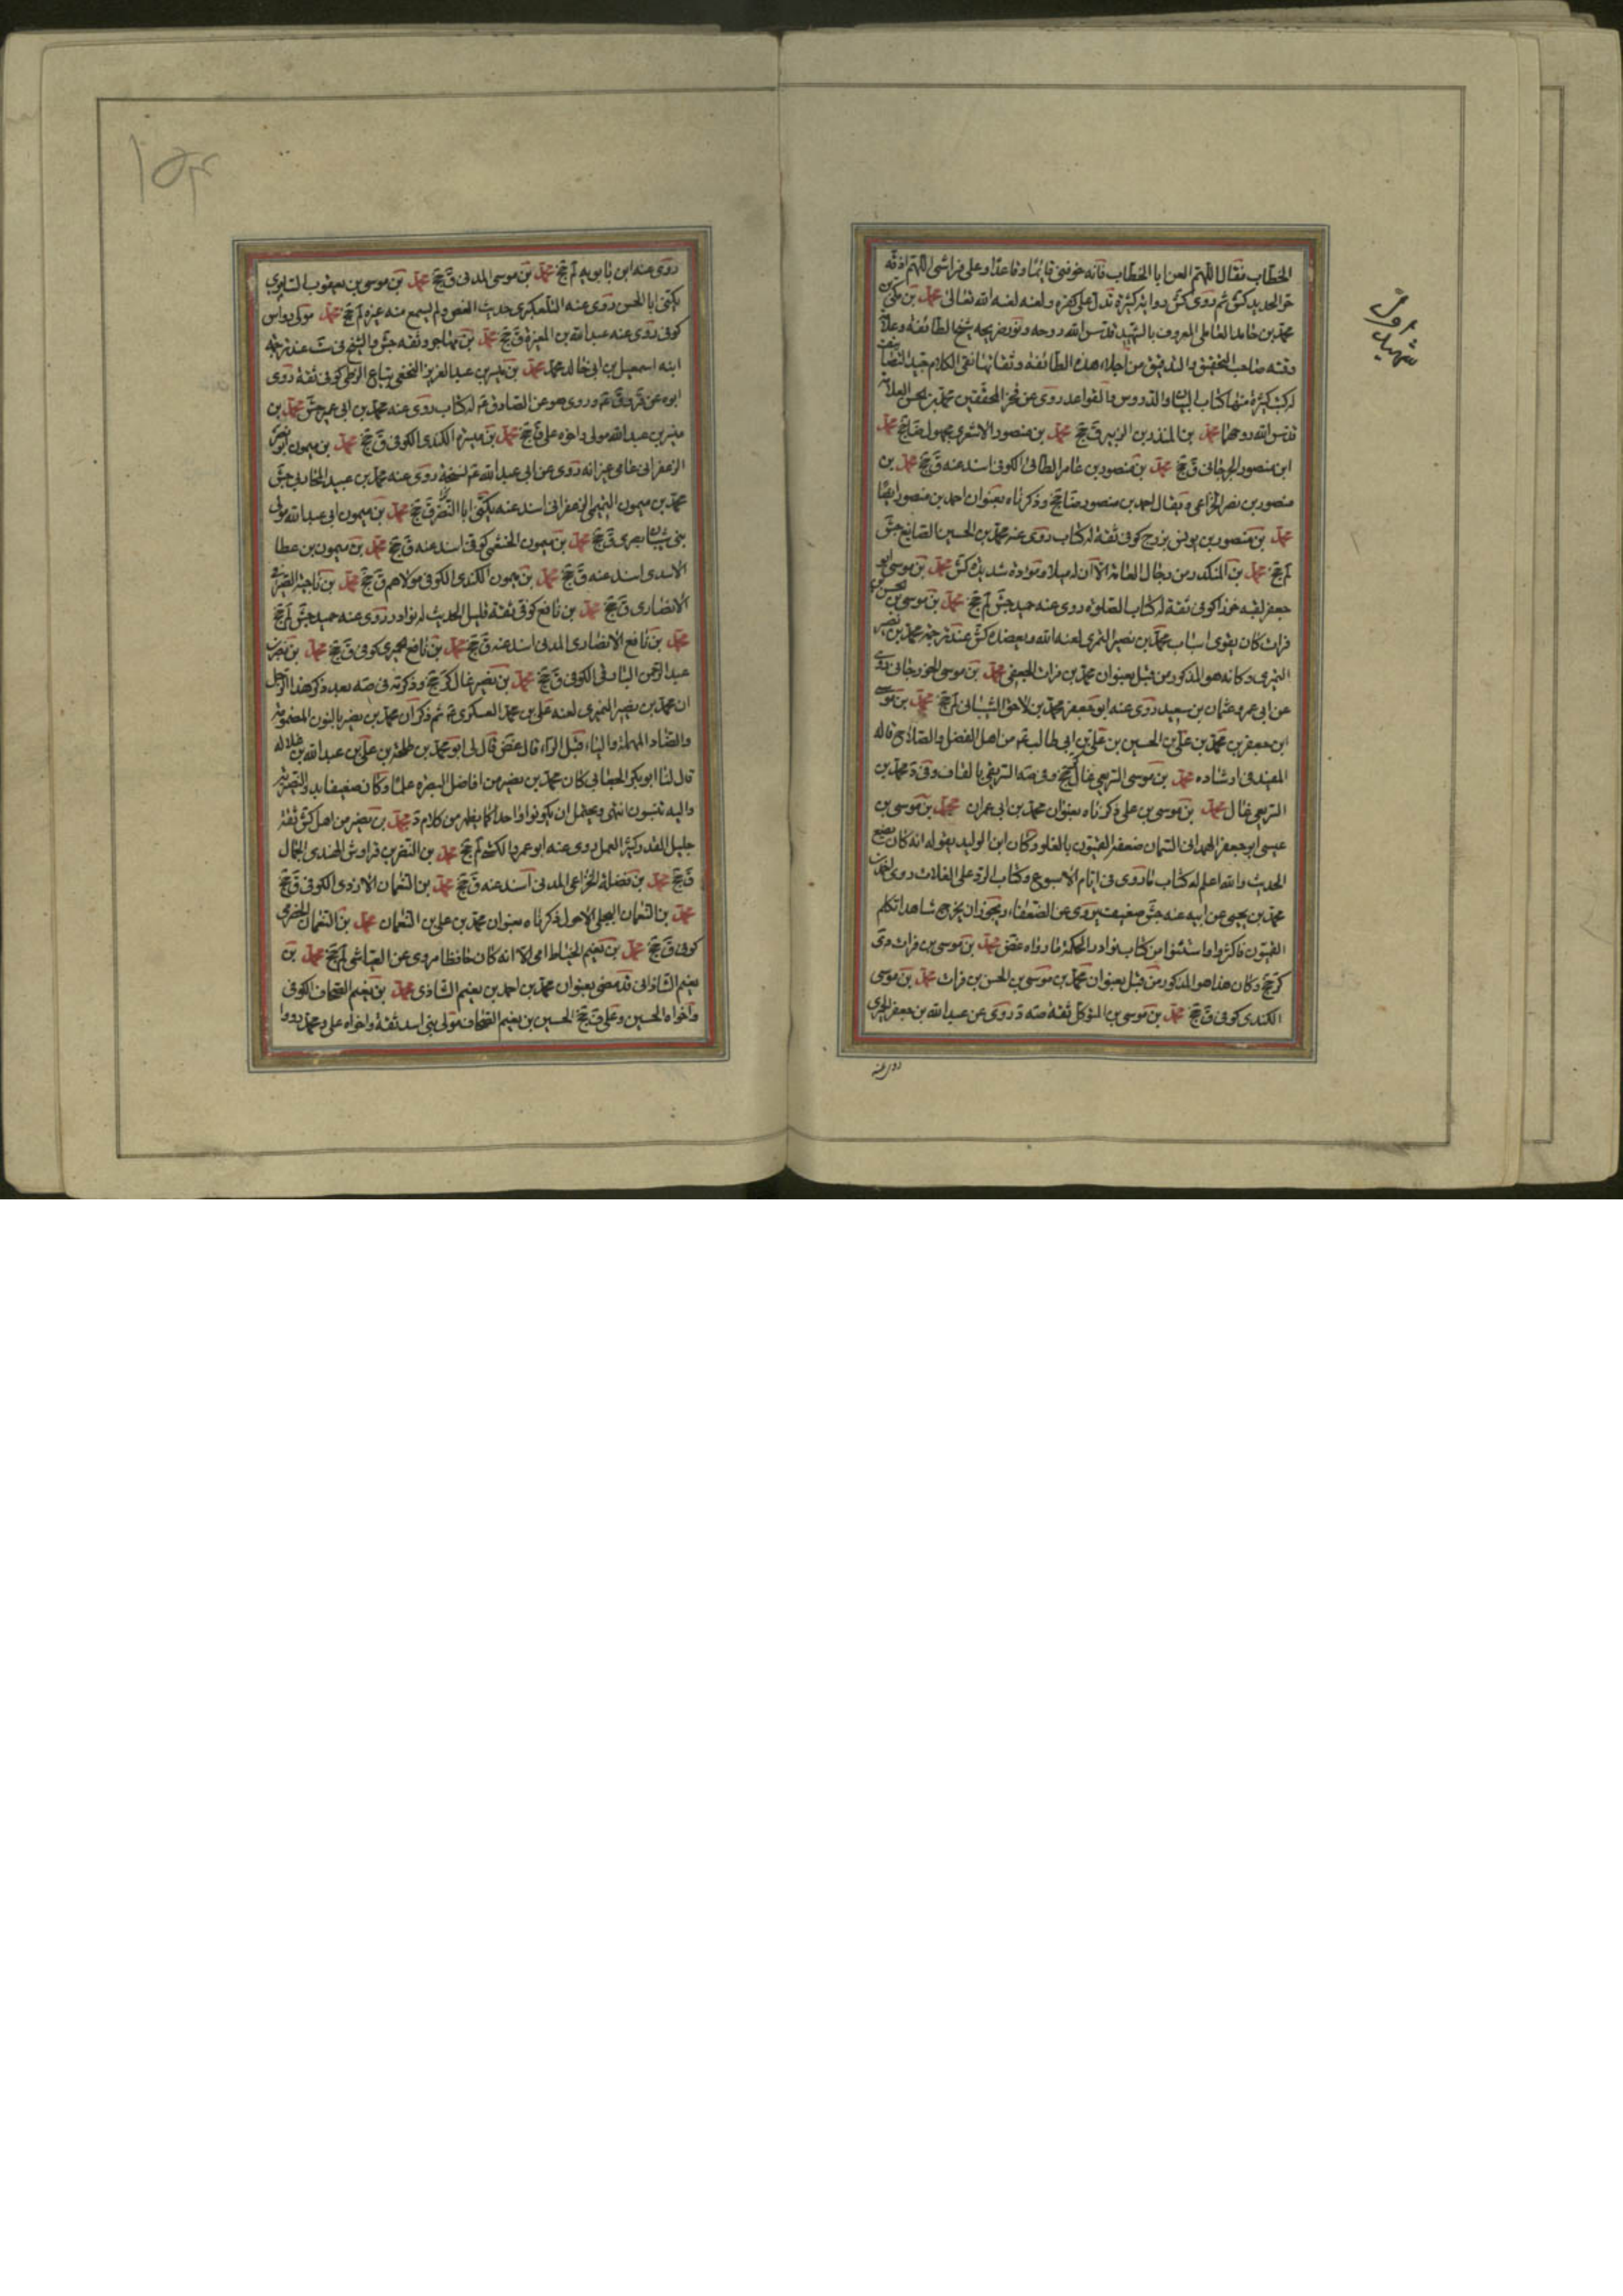 الخطاب فقال اللهم العن ابا الخطاب فانه خوفني قائما وقاعدا وعلى فراشي اللهم اذقه
حر الحديد كش ثم روى كش روايات كثيرة تدل على كفره ولعنه لعنه الله تعالى محمد بن مكي بن
محمد بن حامد العاملي المعروف بالشهيد قدس الله روحه ونور ضريحه شيخ الطائفة وعلامة
وقته صاحب التحقيق والتدقيق من اجلاء هذه الطائفة وثقاتها نقي الكلام جيد التصانيف
له كتب كثيرة منها كتاب البيان والدروس والقواعد روى عن فخر المحققين محمد بن الحسن العلامة
قدس الله روحهما محمد بن المنذر بن الزبير ق جخ محمد بن منصور الاشعري مجهول ضا جخ محمد
ابن منصور الجرجاني ق جخ محمد بن منصور بن عامر الطائي الكوفي اسند عنه ق جخ محمد بن
منصور بن نصر الخزاعي ويقال احمد بن منصور ضا جخ وذكرناه بعنوان احمد بن منصور ايضا
محمد بن منصور بن يونس بزرج كوفي ثقة له كتاب روى عنه محمد بن الحسين الصايغ جش
لم جخ محمد بن المنكدر من رجال العامة الا ان له ميلا ومودة شديدة كش محمد بن موسى ابو
جعفر لقبه خوراء كوفي ثقة له كتاب الصلوة روى عنه حميد جش لم جخ محمد بن موسى بن الحسن بن
فرات كان يقوى اسباب محمد بن نصير النميري لعنه الله ويعضده كش عند ترجمة محمد بن نصير
النميري وكانه هو المذكور من قبل بعنوان محمد بن فرات الجعفي محمد بن موسى الخورجاني روى
عن ابي عمرو عثمان بن سعيد روى عنه ابو جعفر محمد بن لاحق الشيباني لم جخ محمد بن موسى
ابن جعفر بن محمد بن علي بن الحسين بن علي بن ابي طالب عم من اهل الفضل والصلاح قاله
المفيد في ارشاده محمد بن موسى السريعي غال كر جخ وفي صه الشريقي بالقاف وفي د محمد بن
الشريعي غال محمد بن موسى بن علي ذكرناه بعنوان محمد بن ابي عمران محمد بن موسى بن
عيسى ابو جعفر الهمداني السمان ضعفه القميون بالغلو وكان ابن الوليد يقول انه كان يضع
الحديث والله اعلم له كتاب ما روى في ايام الاسبوع وكتاب الرد على الغلاة روى
محمد بن يحيى عن ابيه عنه جش ضعيف يروى عن الضعفاء ويجوز ان يخرج شاهدا تكلم
القميون فاكثروا واستثنوا من كتاب نوادر الحكمة ما رواه غض محمد بن موسى بن فرات
كر جخ وكان هذا هو المذكور من قبل بعنوان محمد بن موسى بن الحسن بن فرات محمد بن موسى
الكندي كوفي ق جخ محمد بن موسى بن المتوكل ثقة صه د روى عن عبد الله بن جعفر الحميري
روى عنه
شهيد اول
روى عنه ابن بابويه لم جخ محمد بن موسى المدني ق جخ محمد بن موسى بن يعقوب
يكنى ابا الحسن روى عنه التلعكبري حديث ولم يسمع منه غيره لم جخ محمد مولى رواس
كوفي روى عنه عبد الله بن المغيرة ق جخ محمد بن مهاجر وثقه جش والشيخ في ست عند ترجمة
ابنه اسمعيل بن ابي خالد محمد محمد بن ميسر بن عبد العزيز النخعي بياع الزطي كوفي ثقة روى
ابوه عن قر و ق عم وروى هو عن الصادق عم له كتاب روى عنه محمد بن ابي عمير جش محمد بن
ميسر بن عبد الله مولى واخوه علي ق جخ محمد بن ميسرة الكندي الكوفي ق جخ محمد بن ميمون ابو نصر
الزعفراني عامي غير انه روى عن ابي عبد الله عم نسخة روى عنه محمد بن عبيد المحاربي جش
محمد بن ميمون التميمي الزعفراني اسند عنه يكنى ابا النضر ق جخ محمد بن ميمون ابي عبد الله مولى
بني شيبان بصري ق جخ محمد بن ميمون الخثعمي كوفي اسند عنه ق جخ محمد بن ميمون بن عطا
الاسدي اسند عنه ق جخ محمد بن ميمون الكندي الكوفي مولاهم ق جخ محمد بن ناجية
الانصاري ق جخ محمد بن نافع كوفي ثقة قليل الحديث له نوادر روى عنه حميد جش لم جخ
محمد بن نافع الانصاري المدني اسند عنه ق جخ محمد بن نافع الحميري كوفي ق جخ محمد بن نصر بن
عبد الرحمن الكوفي ق جخ محمد بن نصير غال كر جخ وذكرته في صه بعد ذكر هذا الرجل
ان محمد بن نصير النميري لعنه علي بن محمد العسكري عم ثم ذكر ان محمد بن نصير بالنون المضمومة
والصاد المهملة والياء قبل الراء قال غض قال لي ابو محمد بن طلحة بن علي بن عبد الله بن غلالة
قال لنا ابو بكر الجعابي كان محمد بن نصير من افاضل البصرة علما وكان ضعيفا بدو النصيرية
واليه تنسبون انتهى ويحتمل ان يكونوا واحدا كما يظهر من كلام د محمد بن نصير من اهل كش ثقة
جليل القدر كثير العمل روى عنه ابو عمرو الكشي لم جخ محمد بن النضر بن قرواش الهندي الجمال
ق جخ محمد بن نضلة الخزاعي المدني اسند عنه ق جخ محمد بن النعمان الازدي الكوفي ق جخ
محمد بن النعمان البجلي الاحول ذكرناه بعنوان محمد بن علي بن النعمان محمد بن النعمان الحضرمي
كوفي ق جخ محمد بن نعيم الخياط امي الا انه كان حافظا مروي عن العياشي لم جخ محمد بن
نعيم الشاذاني قد مضى بعنوان محمد بن احمد بن نعيم الشاذي محمد بن نعيم الصحاف الكوفي
واخواه الحسين وعلي ق جخ الحسين بن نعيم الصحاف مولى بني اسد ثقة واخواه علي ومحمد رووا